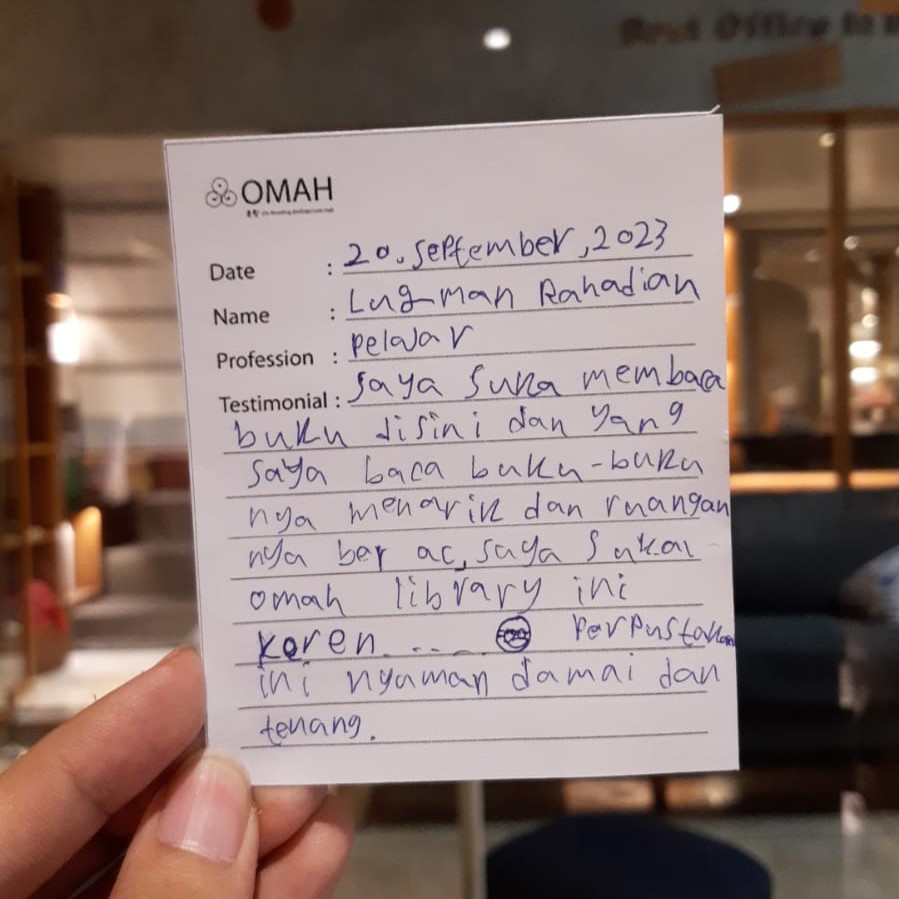 Best Office in
OMAH
Date : 20. September, 2023
Name : Luqman Rahadian
Profession : Pelajar
Testimonial : Saya suka membaca
buku disini dan yang
saya baca buku-buku
nya menarik dan ruangan
nya ber ac, saya sukai
omah library ini
keren........ Perpustakaan
ini nyaman damai dan
tenang.